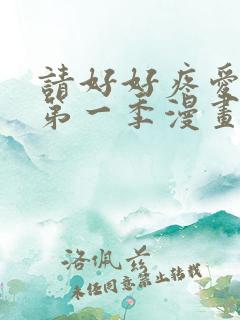 請好好疼愛
第一季漫畫
洛佩茲
未任同意禁止轉載